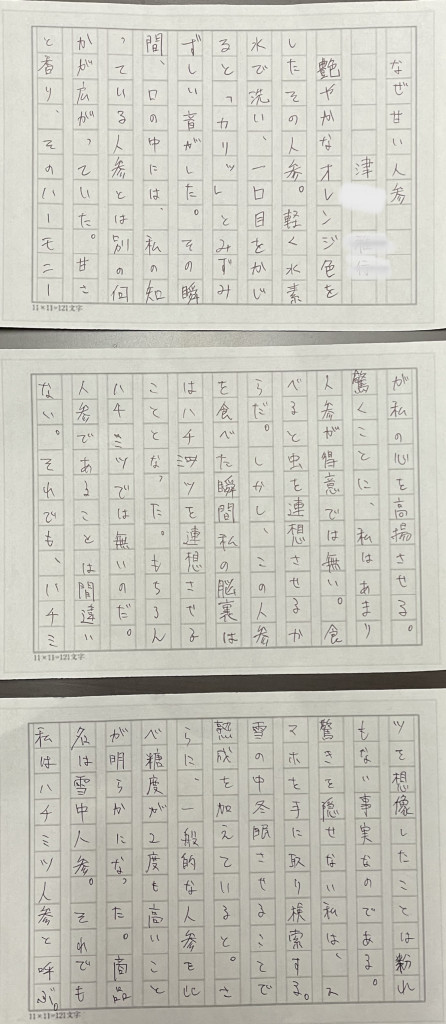 なぜ甘い人参
津
艶やかなオレンジ色を
したその人参。軽く水素
水で洗い、一口目をかじ
ると「カリッ」とみずみ
ずしい音がした。その瞬
間、口の中には、私の知
っている人参とは別の何
かが広がっていた。甘さ
と香り、そのハーモニー
11×11=121文字
が私の心を高揚させる。
驚くことに、私はあまり
人参が得意では無い。食
べると虫を連想させるか
らだ。しかし、この人参
を食べた瞬間私の脳裏は
はハチミツを連想させる
こととなった。もちろん
ハチミツでは無いのだ。
人参であることは間違い
ない。それでも、ハチミ
11×11=121文字
ツを想像したことは紛れ
もない事実なのである。
驚きを隠せない私は、ス
マホを手に取り検索する。
雪の中冬眠させることで
熟成を加えていると。さ
らに、一般的な人参と比
べ糖度が2度も高いこと
が明らかになった。商品
名は雪中人参。それでも
私はハチミツ人参と呼ぶ。
11×11=121文字